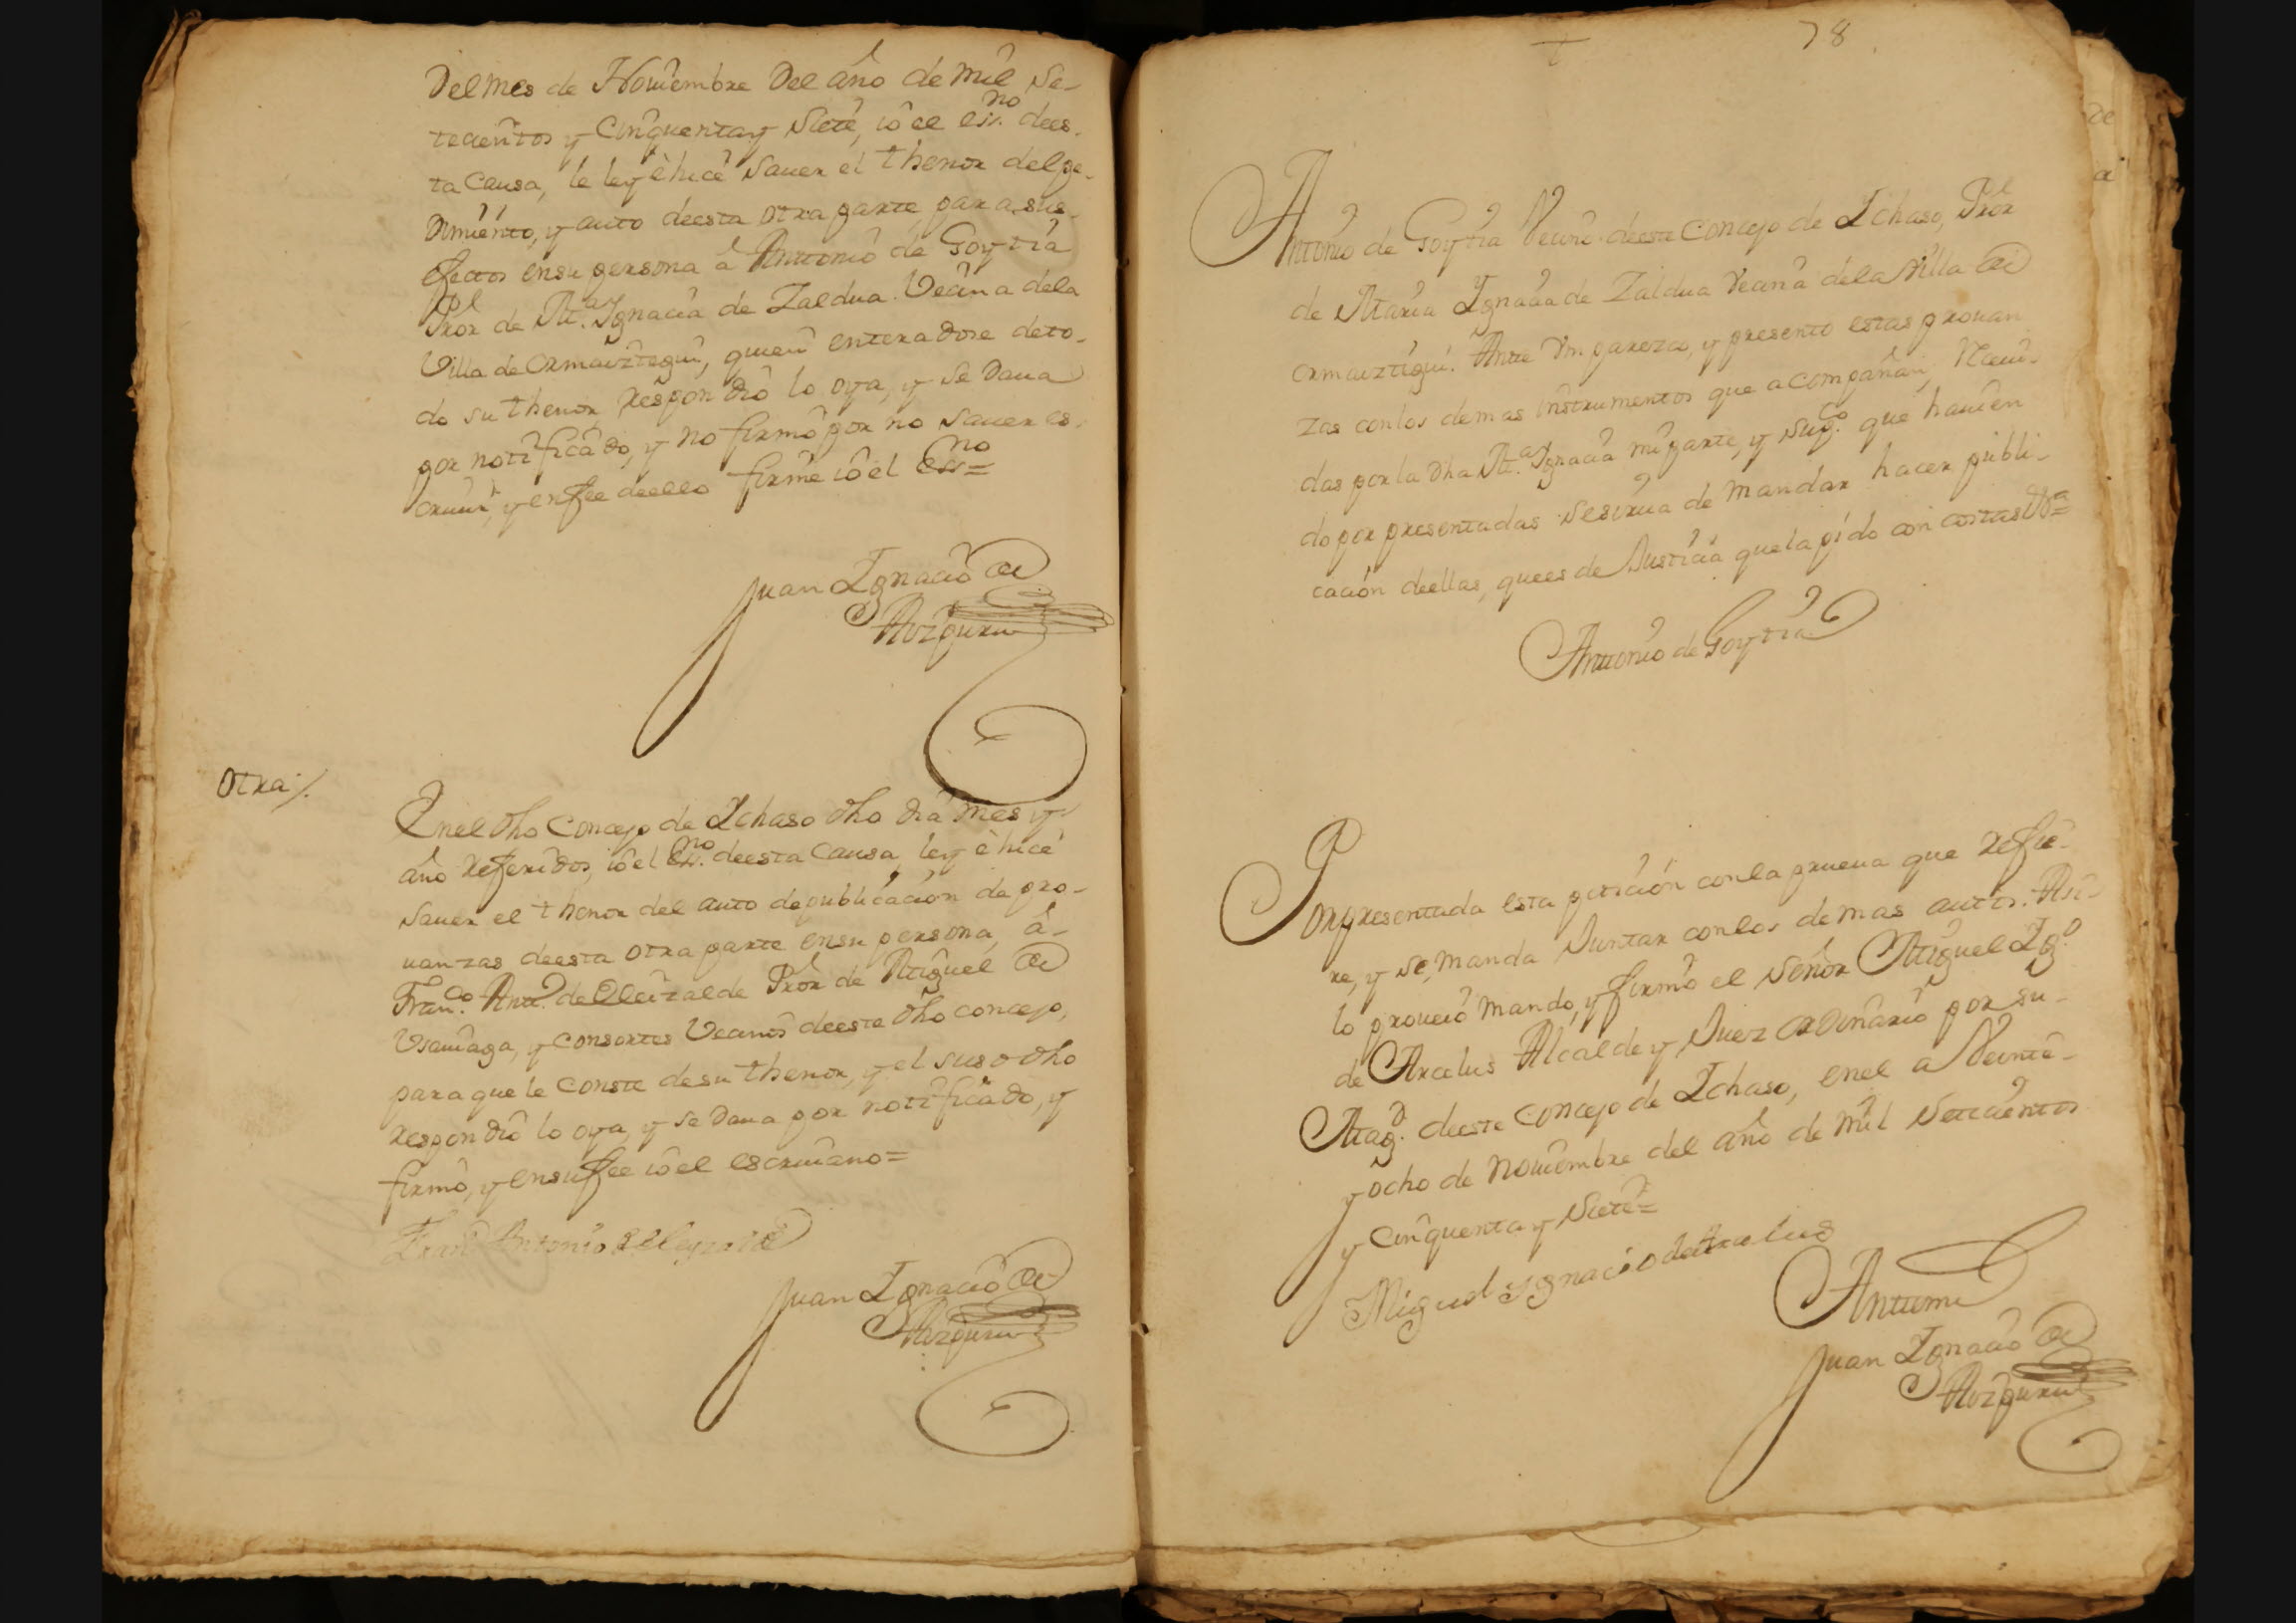 Del mes de Noviembre Del año de mil Se-
tecientos y Cinquenta y Siete, io el ess.no dees-
ta Causa, le ley è hice Saver el thenor del pe-
dimiento, y auto deesta otra parte para sus
efectos ensu persona à Antonio de Goytia
Pror de M.a Ignacia de Zaldua Vecina dela
Villa de Ormaiztegui, quien enteradose deto-
do su thenor Respondiô lo oya, y se Dava
por notificado, y no firmô por no Saver es-
crivir, y enfee deello firmè io el Essno=
Juan Ignacio de
Aizpuru
Otra /.
Enel dho Concejo de Ichaso dho dia mes y
año Referidos, io el Ess.no deesta Causa, ley è hice
Saver el thenor del auto de publicación de pro-
uanzas deesta otra parte ensu persona, â
Fran.co Ant.o de Eleizalde Pror de Miguel de
Usauiaga, y consortes Vecinos deeste dho concejo,
para que le conste desu thenor, y el suso dho
Respondiô lo oya, y se Dava por notificado, y
firmô, y ensufee io el escriuano=
Fran.co Antonio de Eleyzalde
Juan Ignacio de
Aizpuru
78
Antonio de Goytia Vecino deeste Concejo de Ichaso, Pror
de Maria Ignacia de Zaldua Vecina dela Villa de
Ormaiztigui. Ante Vm. parezco, y presento estas prouan
zas conlos demas instrumentos que acompañan,
das por la dha M.a Ignacia mi parte, y Sup.co que hauien
do por presentadas Se sirua de mandar hacer publi-
cación deellas, quees de Justicia quela pido con costas &a=
Antonio de Goytia
Por presentada esta petición conla prueua que Refie-
re, y se manda Juntar conlos demas autos. Asi-
lo proueiô mando, y firmô el Señor Miguel Ig.o
de Arcelus Alcalde y Juez ordinario por su
Mag.d deeste Concejo de Ichaso, enel a Veinte-
y ocho de Noviembre del año de mil Setecientos
y Cinquenta y Siete=
Miguel Ygnacio de Arcelus
Antemi
Juan Ignacio de
Aizpuru